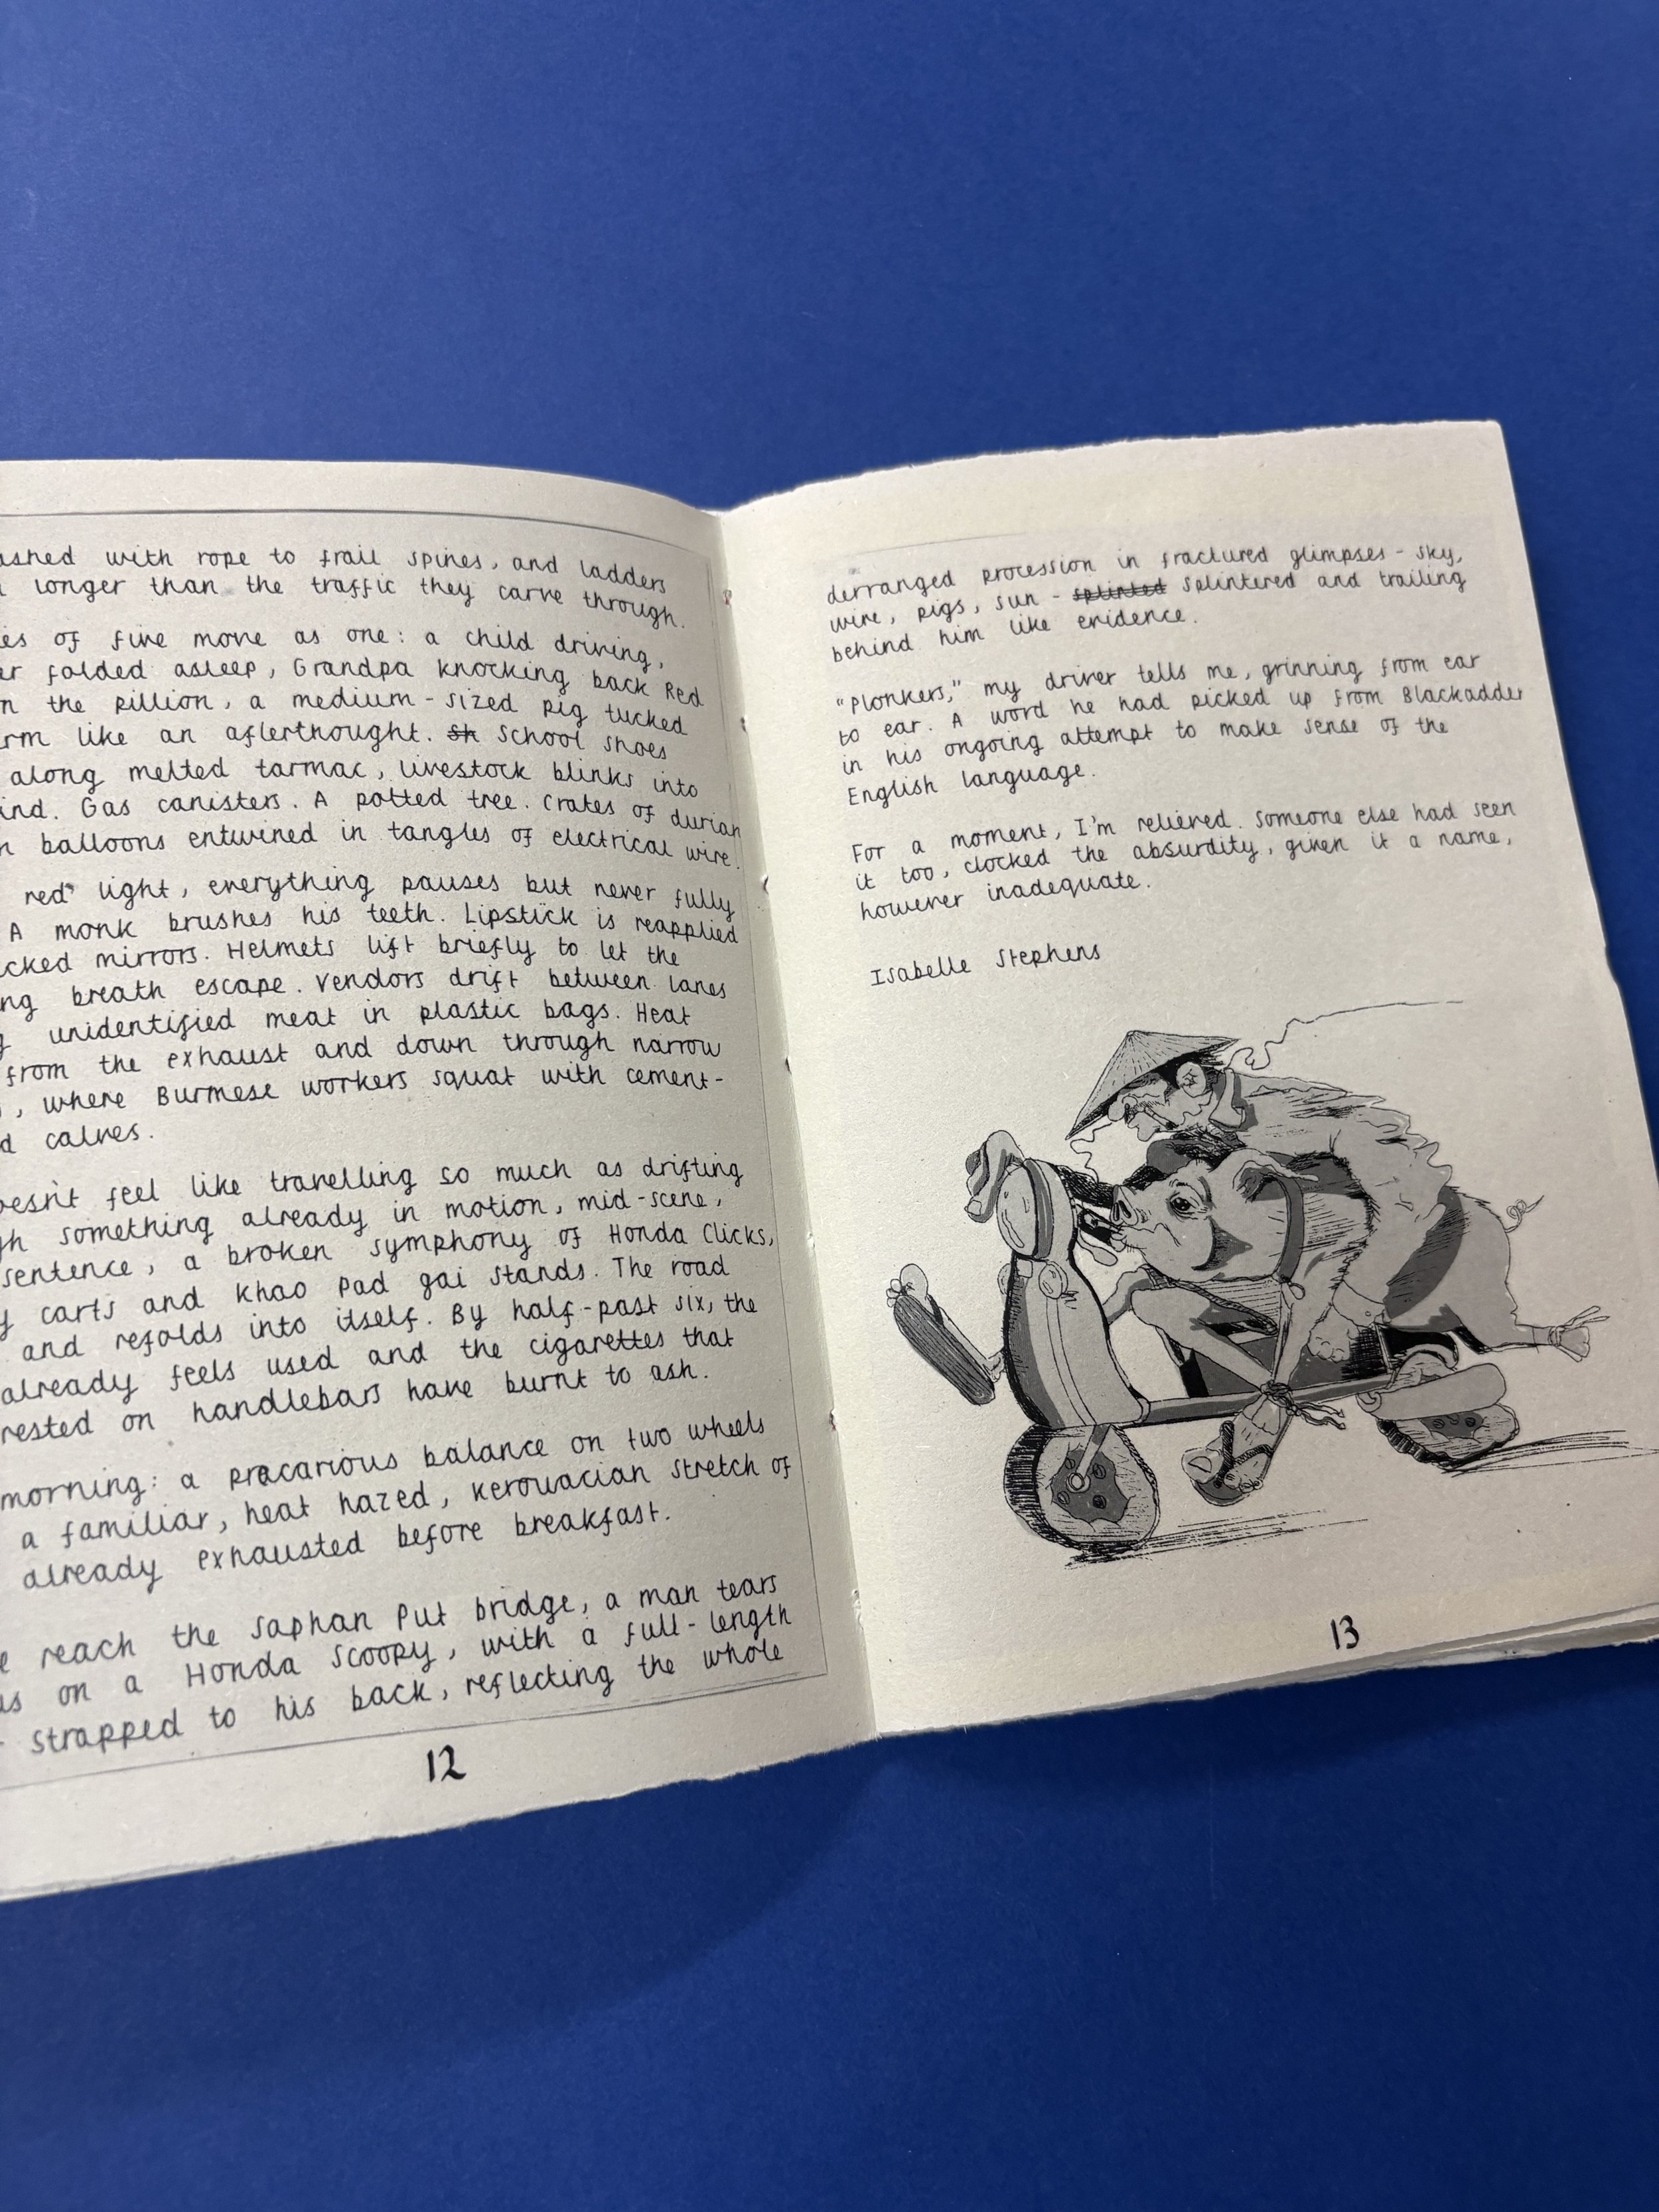 with rope to frail spines, and ladders
longer than the traffic they carve through.
of five move as one: a child driving,
folded asleep, Grandpa knocking back Red
the pillion, a medium-sized pig tucked
like an afterthought. Sh School shoes
along melted tarmac, livestock blinks into
Gas canisters. A potted tree. Crates of durian
balloons entwined in tangles of electrical wire.
red light, everything pauses but never fully
A monk brushes his teeth. Lipstick is reapplied
mirrors. Helmets lift briefly to let the
breath escape. Vendors drift between lanes
unidentified meat in plastic bags. Heat
from the exhaust and down through narrow
, where Burmese workers squat with cement-
calves.
feel like travelling so much as drifting
something already in motion, mid-scene,
sentence, a broken symphony of Honda Clicks,
carts and Khao Pad gai stands. The road
and refolds into itself. By half-past six, the
already feels used and the cigarettes that
rested on handlebars have burnt to ash.
morning: a precarious balance on two wheels
a familiar, heat hazed, Kerouacian stretch of
already exhausted before breakfast.
reach the Saphan Put bridge, a man tears
on a Honda Scoopy, with a full-length
strapped to his back, reflecting the whole
12
derranged procession in fractured glimpses - sky,
wire, pigs, sun - splinted splintered and trailing
behind him like evidence.
"Plonkers," my driver tells me, grinning from ear
to ear. A word he had picked up from Blackadder
in his ongoing attempt to make sense of the
English language.
For a moment, I'm relieved. Someone else had seen
it too, clocked the absurdity, given it a name,
however inadequate.
Isabelle Stephens
13